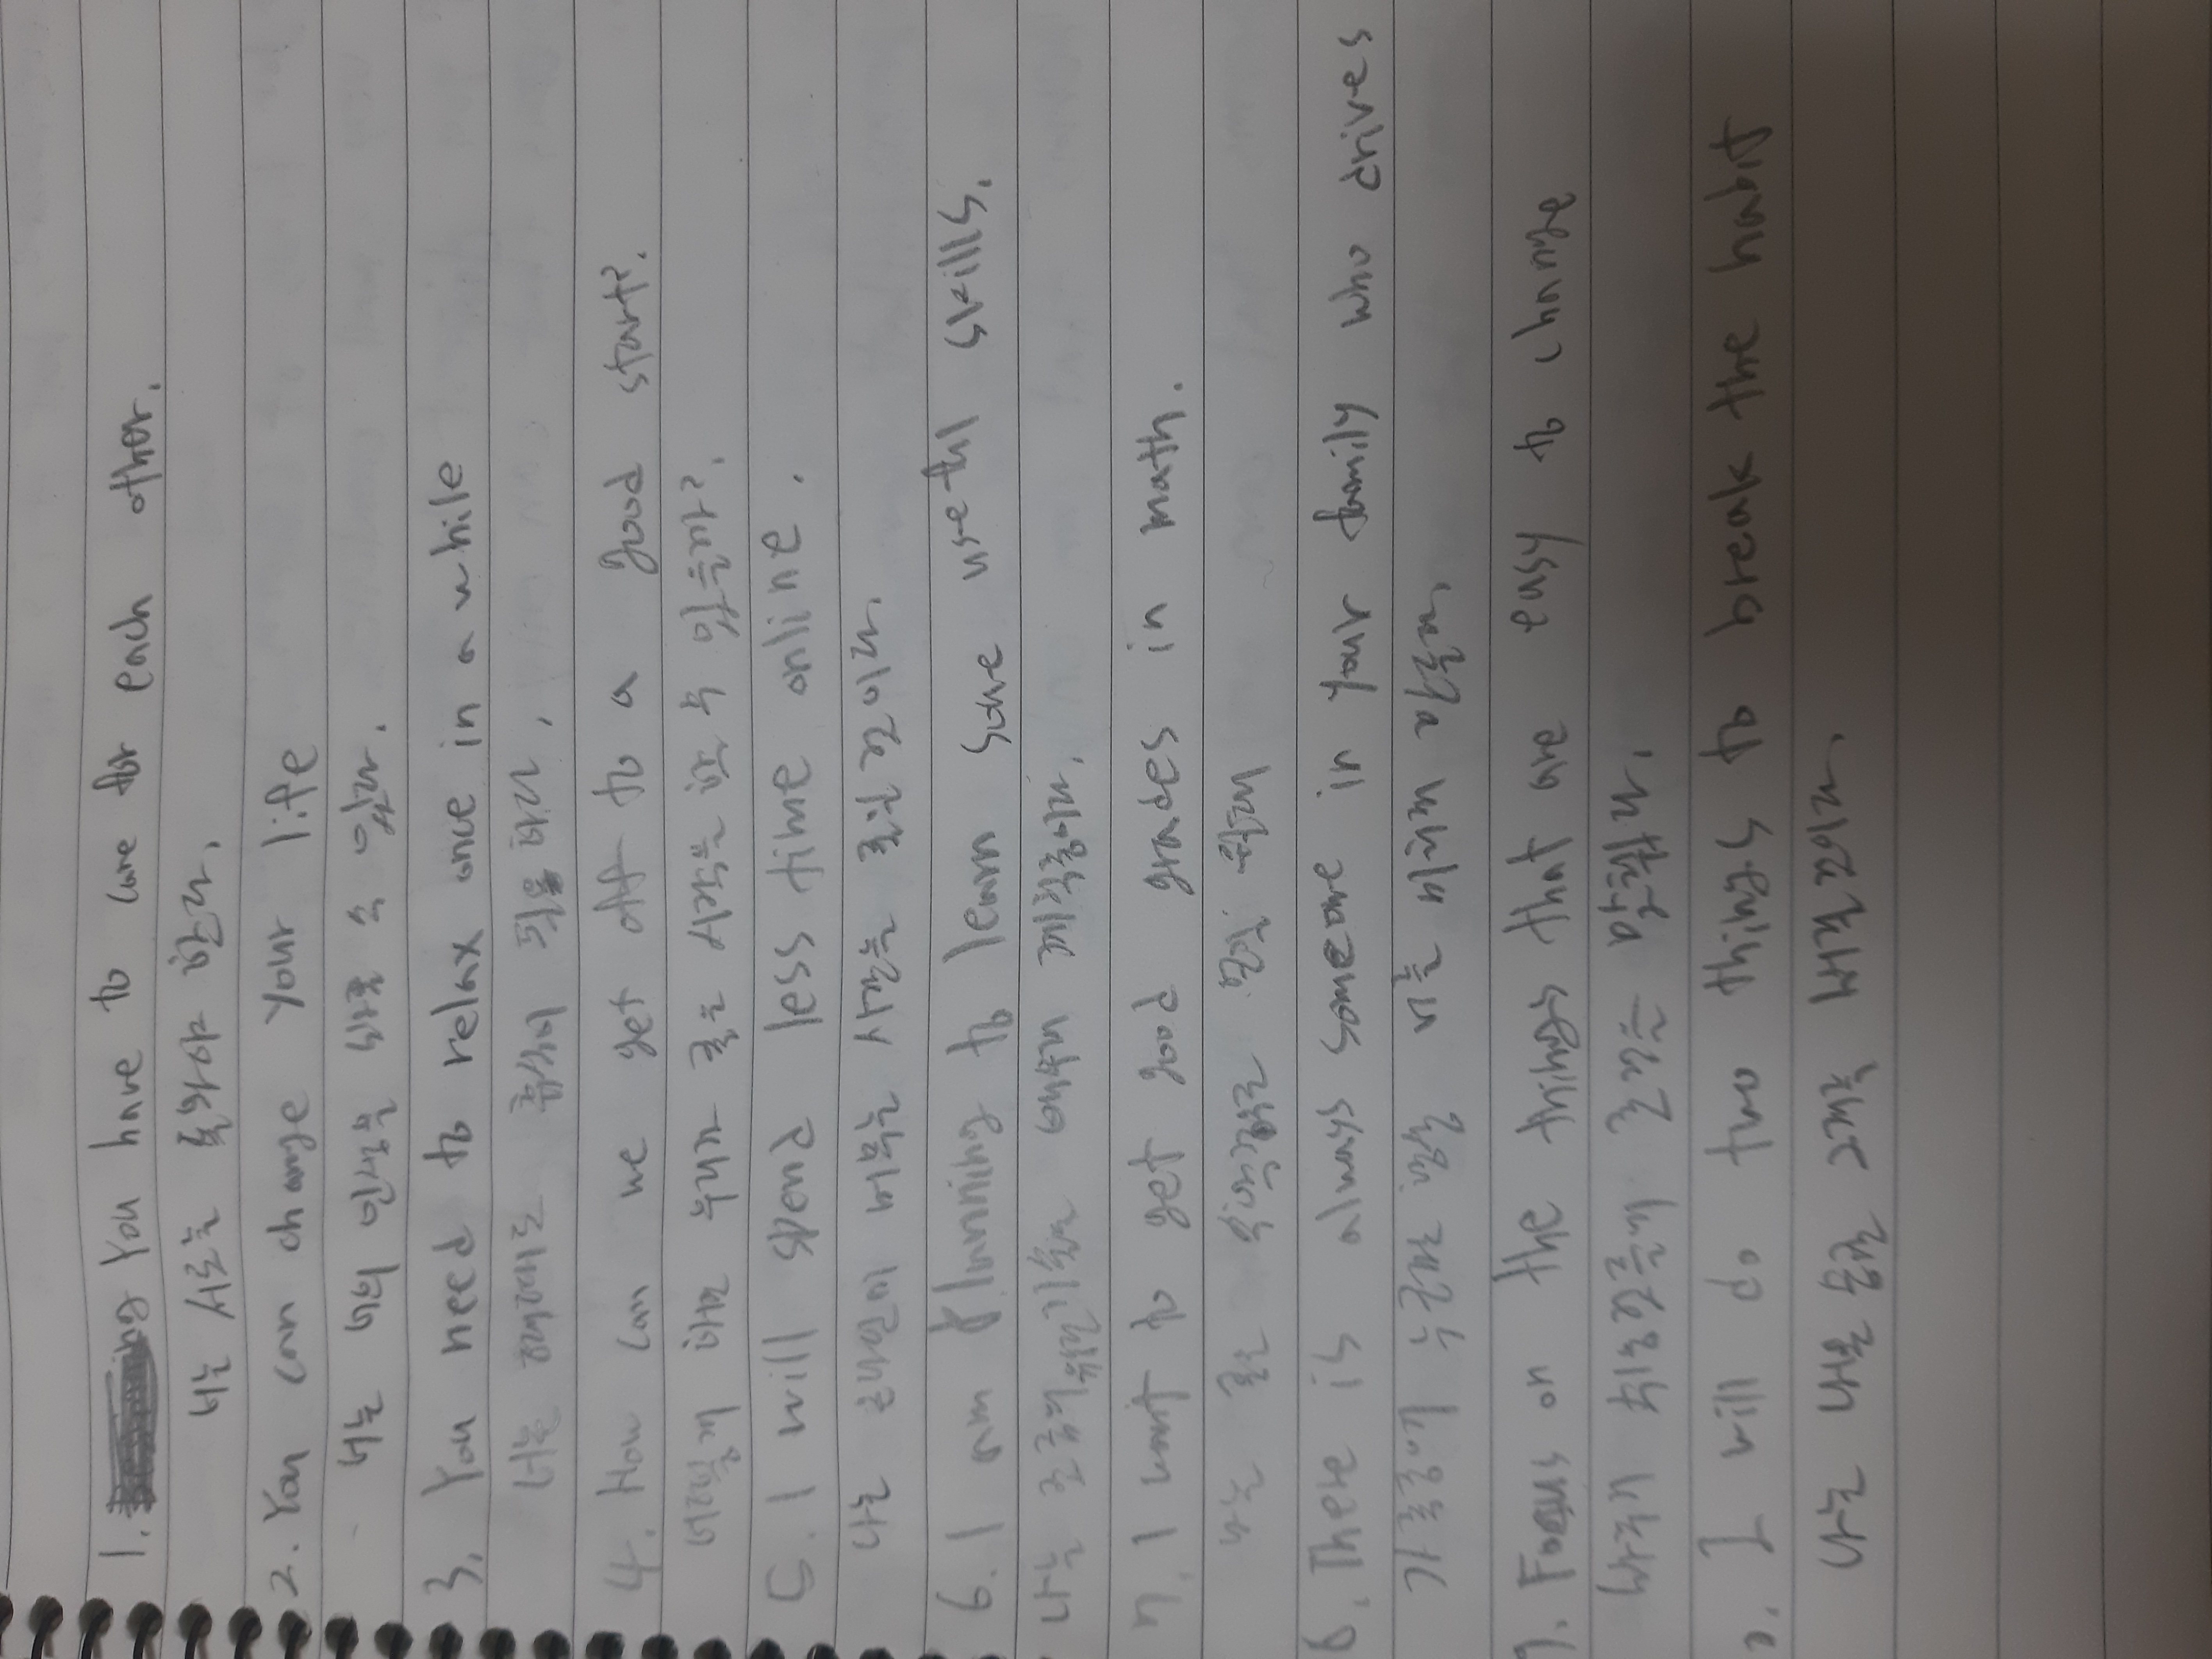 1. You have to care for each other.
너는 서로를 돌봐야 한다.
2. You can change your life
너는 너의 인생을 바꿀 수 있다.
3, You need to relax once in a while
너는 때때로 휴식이 필요하다.
4. How can we get off to a good start?.
어떻게 하면 우리가 좋은 시작을 할 수 있을까?.
5. I will spend less time online.
나는 온라인에 더 적은 시간을
6. I am planning to learn some useful skills.
나는 유용한 기술을 배울 계획중이다.
7, I want to get good grades in math.
나는 좋은 수학 점수를 원해
8, There is always someone in your family who drives
가족들에 누군가는 항상 너를
9. Focus on the things that are easy to change
바꾸기 쉬운 것들에 초점을 맞춰라.
I will do two things to break the habit
나는 나쁜 습관을